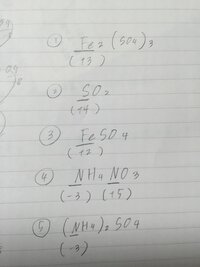 ① Fe2(SO4)3
(+3)
② SO2
(+4)
③ FeSO4
(+2)
④ NH4NO3
(-3) (+5)
⑤ (NH4)2SO4
(-3)